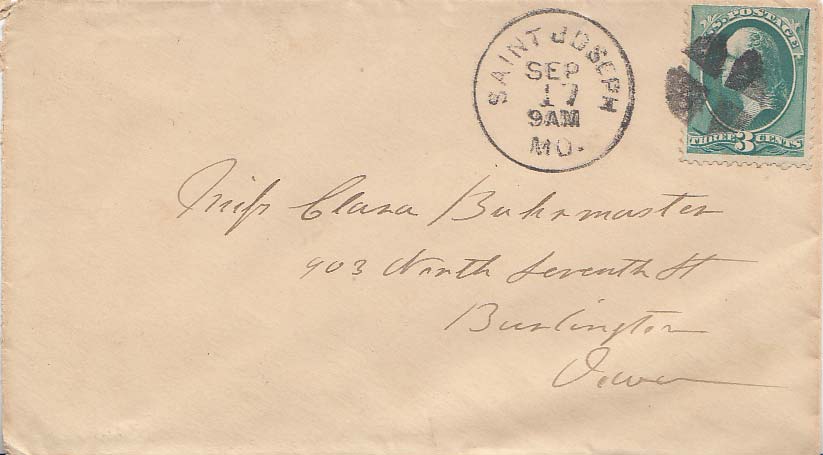 SAINT JOSEPH
SEP
17
9AM
MO.
U.S. POSTAGE
THREE 3 CENTS
Miss Clara Buhrmaster
903 North Seventh St
Burlington
Iowa